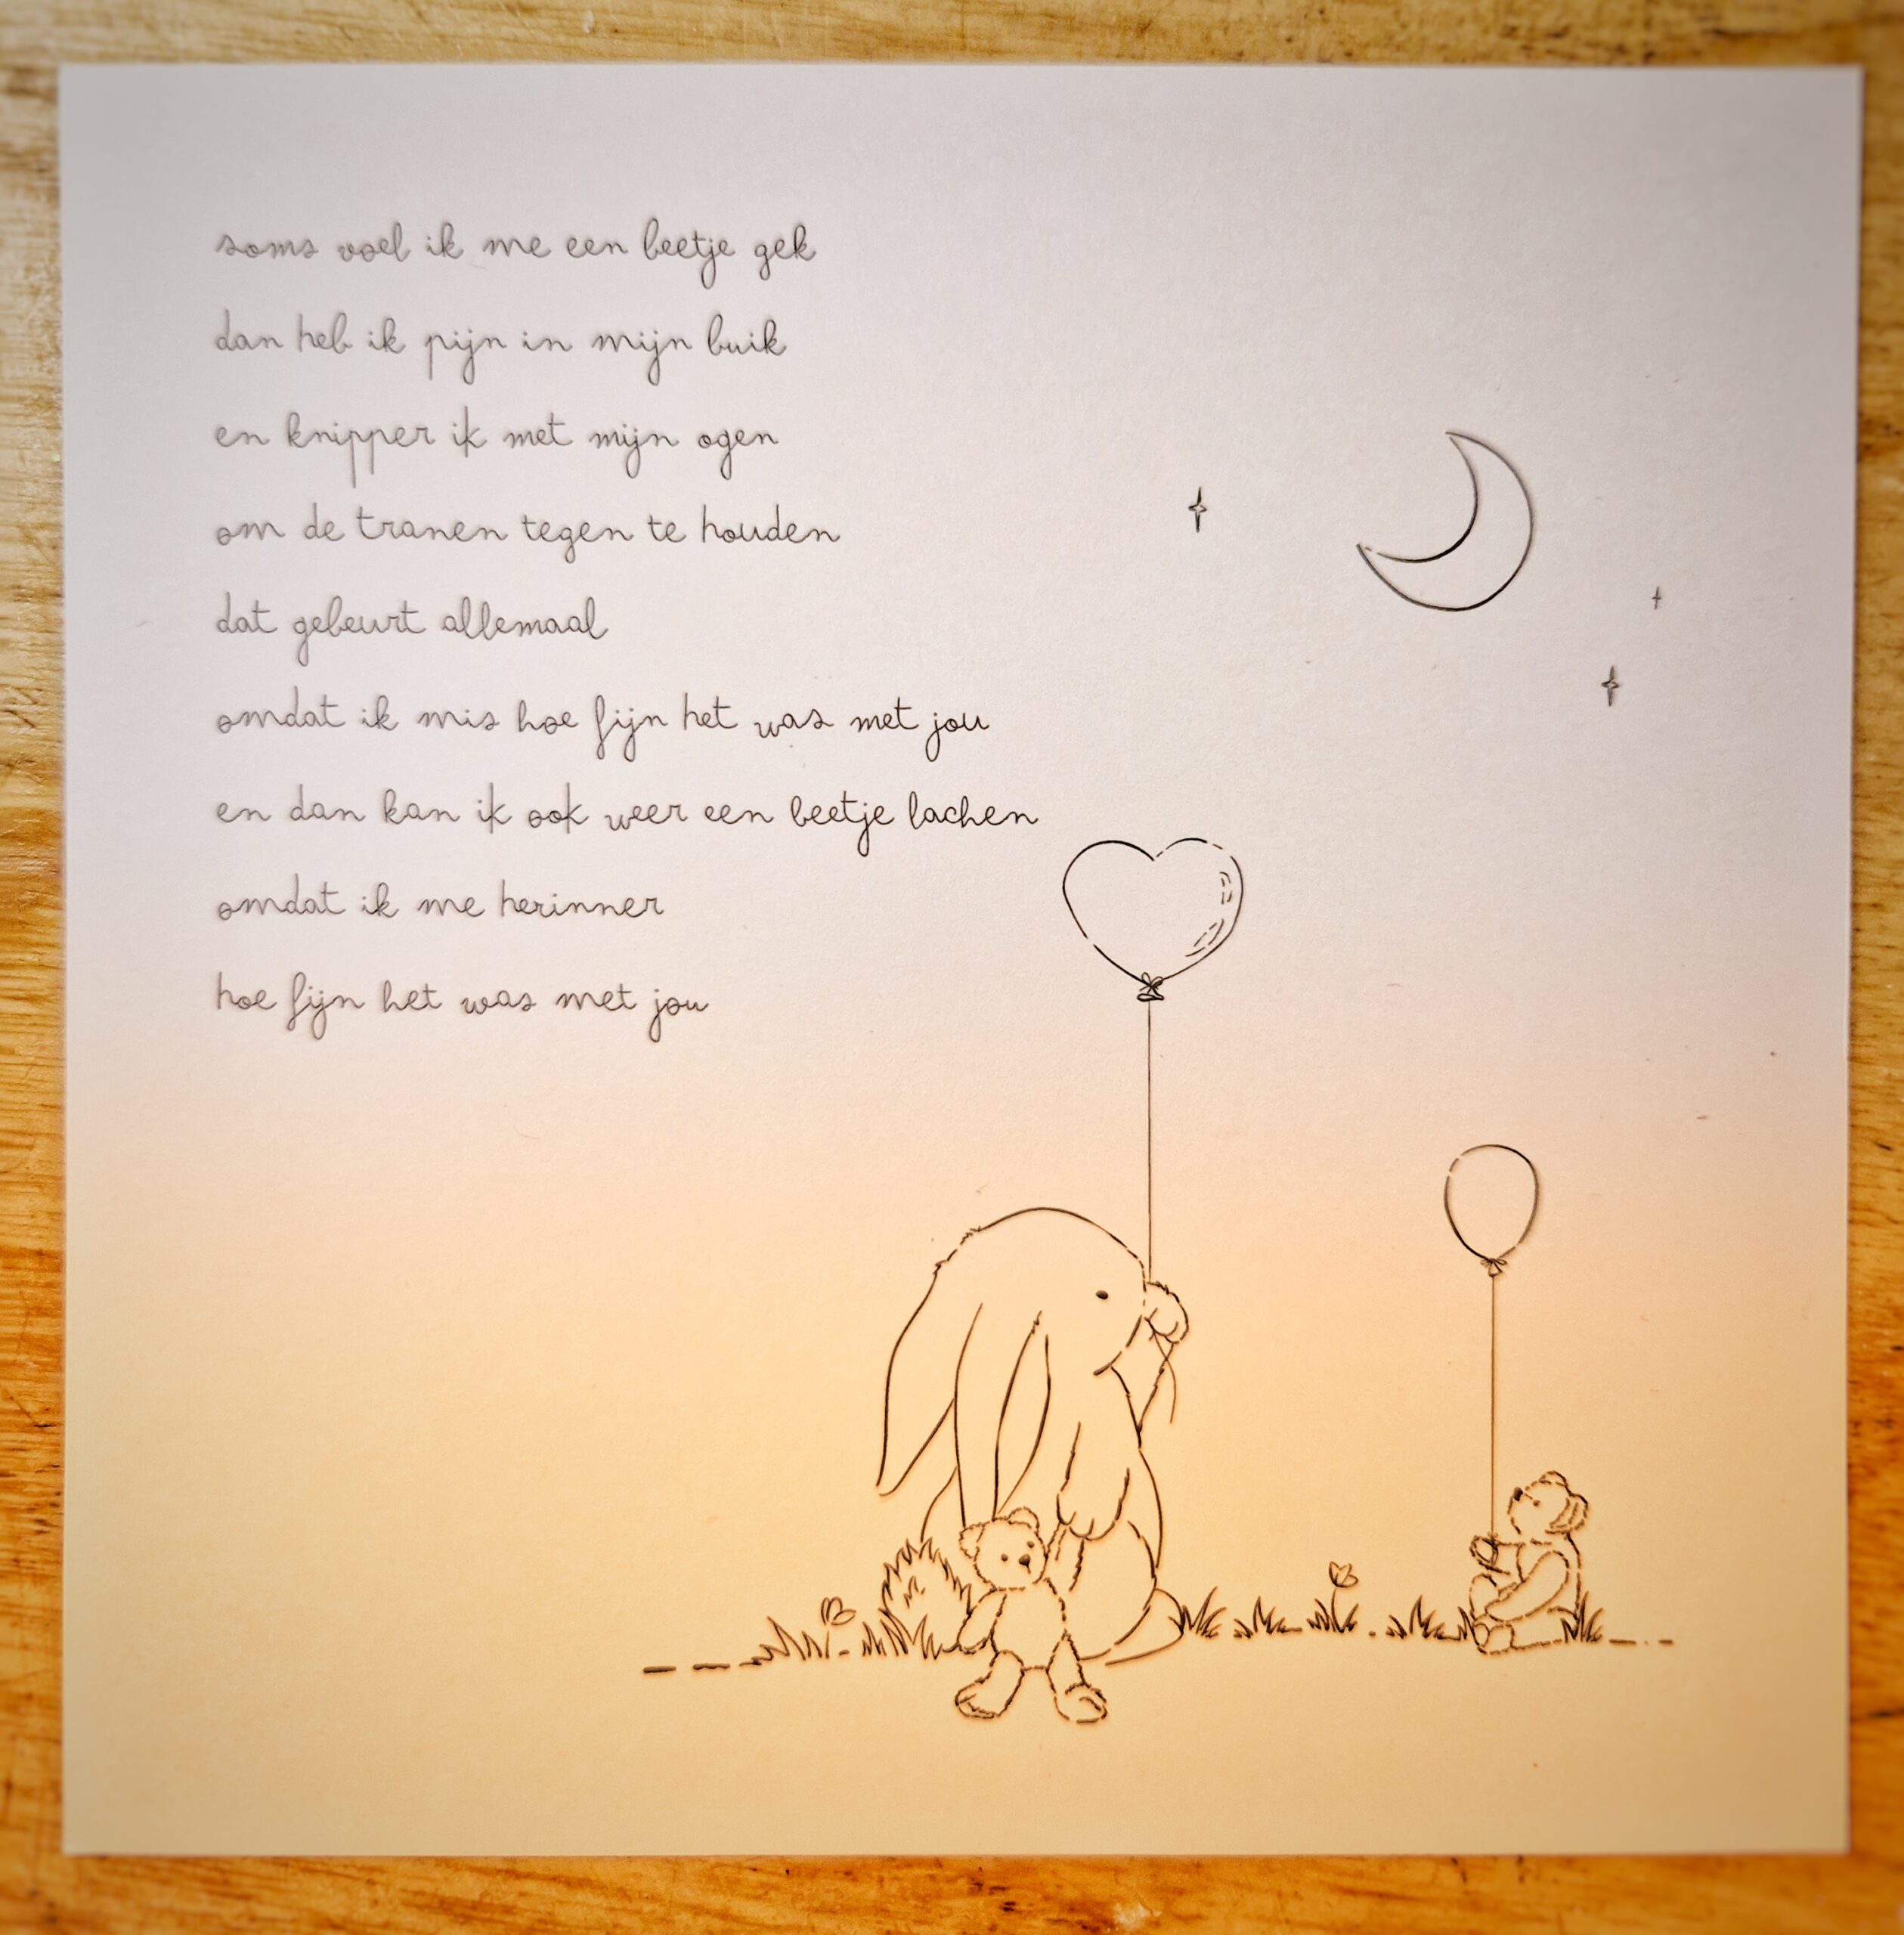 soms voel ik me een beetje gek
dan heb ik pijn in mijn buik
en knipper ik met mijn ogen
om de tranen tegen te houden
dat gebeurt allemaal
omdat ik mis hoe fijn het was met jou
en dan kan ik ook weer een beetje lachen
omdat ik me herinner
hoe fijn het was met jou